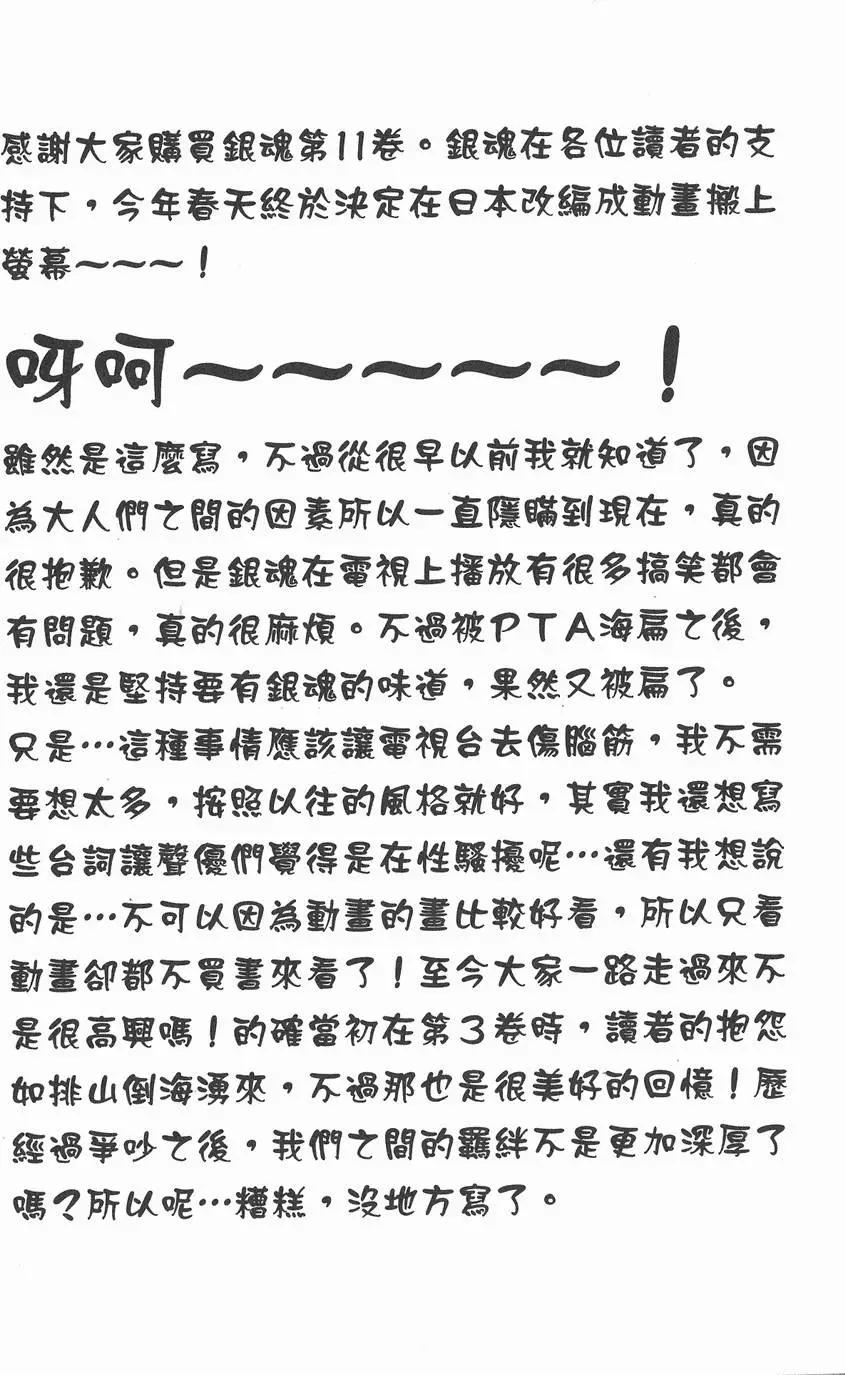 感謝大家購買銀魂第11卷。銀魂在各位讀者的支
持下，今年春天終於決定在日本改編成動畫搬上
螢幕～～～！
呀呵～～～～～！
雖然是這麼寫，不過從很早以前我就知道了，因
為大人們之間的因素所以一直隱瞞到現在，真的
很抱歉。但是銀魂在電視上播放有很多搞笑都會
有問題，真的很麻煩。不過被PTA海扁之後，
我還是堅持要有銀魂的味道，果然又被扁了。
只是…這種事情應該讓電視台去傷腦筋，我不需
要想太多，按照以往的風格就好，其實我還想寫
些台詞讓聲優們覺得是在性騷擾呢…還有我想說
的是…不可以因為動畫的畫比較好看，所以只看
動畫卻都不買書來看了！至今大家一路走過來不
是很高興嗎！的確當初在第3卷時，讀者的抱怨
如排山倒海湧來，不過那也是很美好的回憶！歷
經過爭吵之後，我們之間的羈絆不是更加深厚了
嗎？所以呢…糟糕，沒地方寫了。